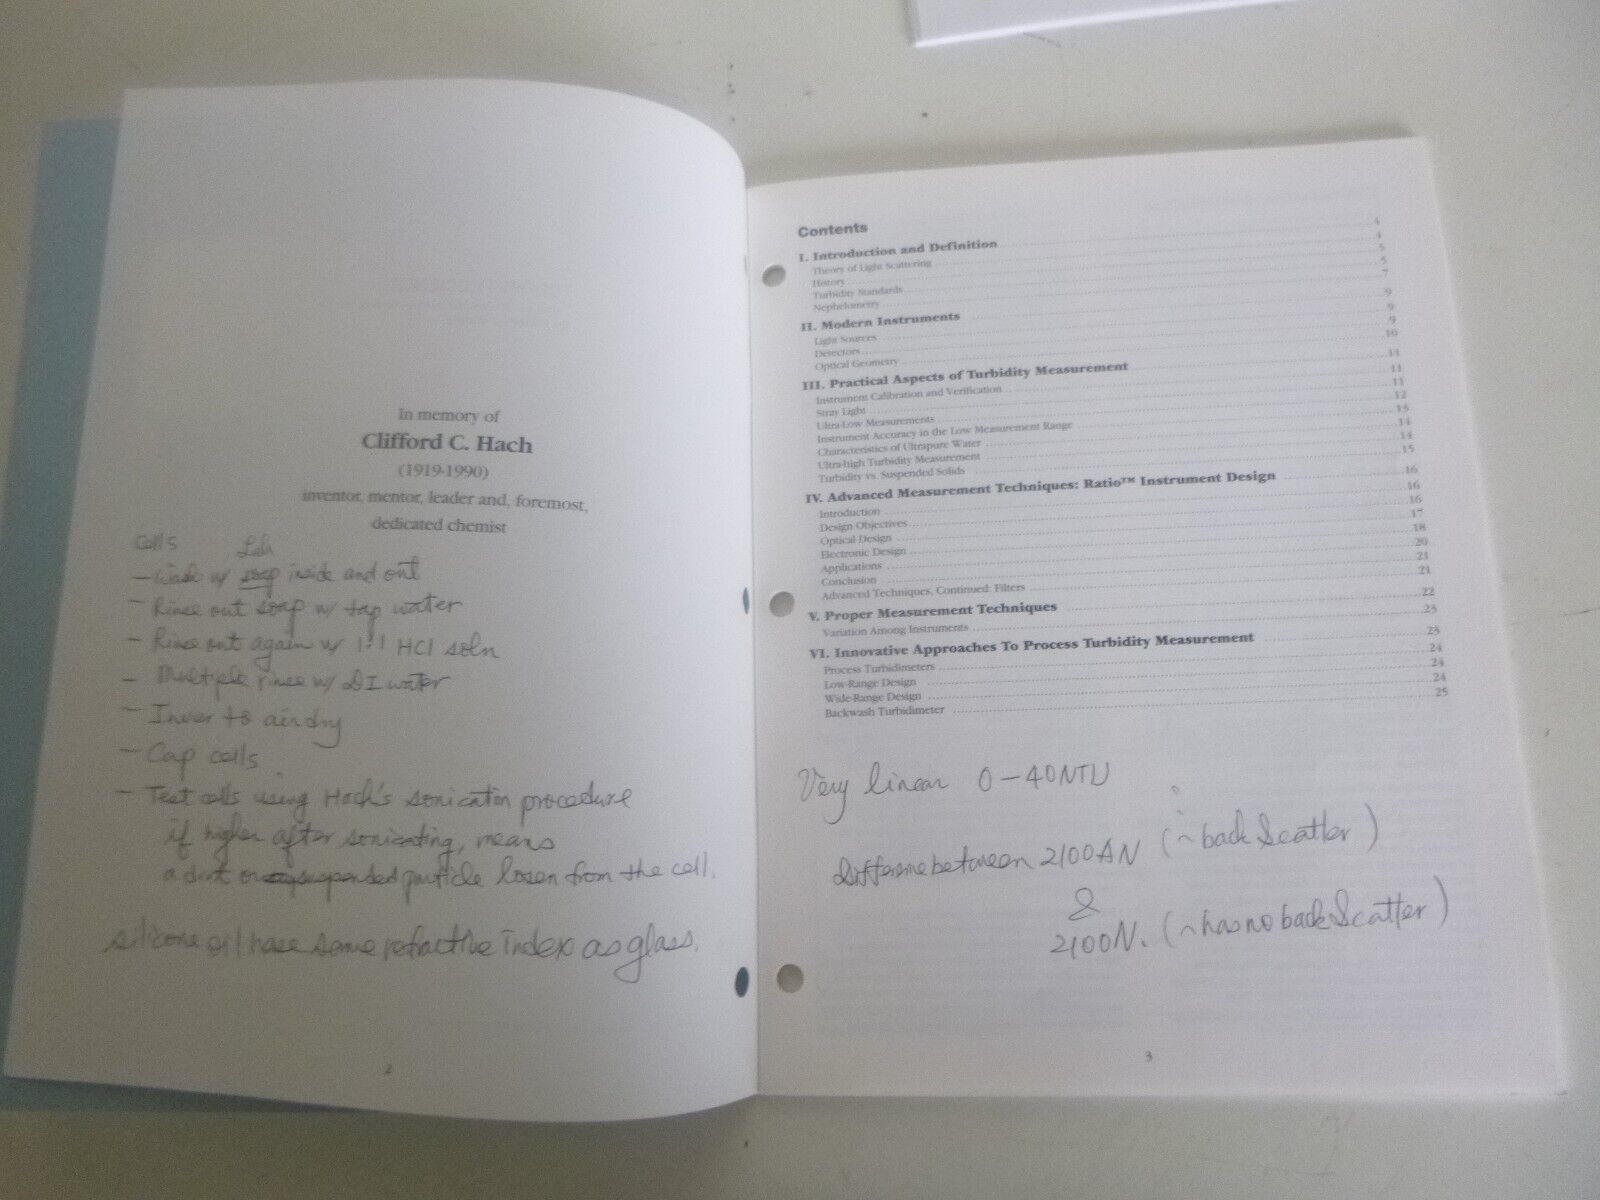 In memory of
Clifford C. Hach
(1919-1990)
inventor, mentor, leader and, foremost,
dedicated chemist
Cells Lab
- Wash w/ soap inside and out
- Rinse out soap w/ tap water
- Rinse out again w/ 1:1 HCl soln
- Multiple rinse w/ DI water
- Inver to air dry
- Cap cells
- Test cells using Hach's sonication procedure
if higher after sonicating, means
a dirt or suspended particle losen from the cell.
silicone oil have same refractive index as glass.
2
Contents
I. Introduction and Definition 4
Theory of Light Scattering 4
History 5
Turbidity Standards 5
Nephelometry 7
II. Modern Instruments 9
Light Sources 9
Detectors 9
Optical Geometry 10
III. Practical Aspects of Turbidity Measurement 11
Instrument Calibration and Verification 11
Stray Light 11
Ultra-Low Measurements 12
Instrument Accuracy in the Low Measurement Range 13
Characteristics of Ultrapure Water 14
Ultra-high Turbidity Measurement 14
Turbidity vs. Suspended Solids 15
IV. Advanced Measurement Techniques: Ratio™ Instrument Design 16
Introduction 16
Design Objectives 16
Optical Design 17
Electronic Design 18
Applications 20
Conclusion 21
Advanced Techniques, Continued: Filters 21
V. Proper Measurement Techniques 22
Variation Among Instruments 23
VI. Innovative Approaches To Process Turbidity Measurement 23
Process Turbidimeters 24
Low-Range Design 24
Wide-Range Design 24
Backwash Turbidimeter 25
Very linear 0-40NTU
Difference between 2100AN (~ back Scatter)
&
2100N. (~ has no back Scatter)
3